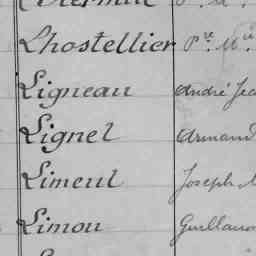 Lhostellier Pre Mie
Ligneau André Jea
Lignel Armand
Limeul Joseph M
Limou Guillau